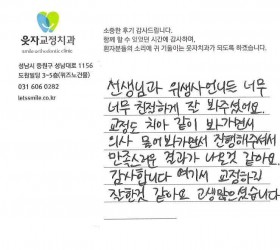 웃자교정치과
smile orthodontic clinic
성남시 중원구 성남대로 1156
도원빌딩 3~5층(위즈노건물)
031 606 0282
letssmile.co.kr
소중한 후기 감사드립니다.
함께 할 수 있었던 시간에 감사하며,
환자분들의 소리에 귀 기울이는 웃자치과가 되도록 하겠습니다.
선생님과 위생사언니들 너무
너무 친절하게 잘 봐주셨어요.
교정도 치아 같이 봐가면서
의사 물어봐가면서 진행해주셔서
만족스러운 결과가 나온것 같아요.
감사합니다 여기서 교정하길
잘한것 같아요 고생많으셨습니다